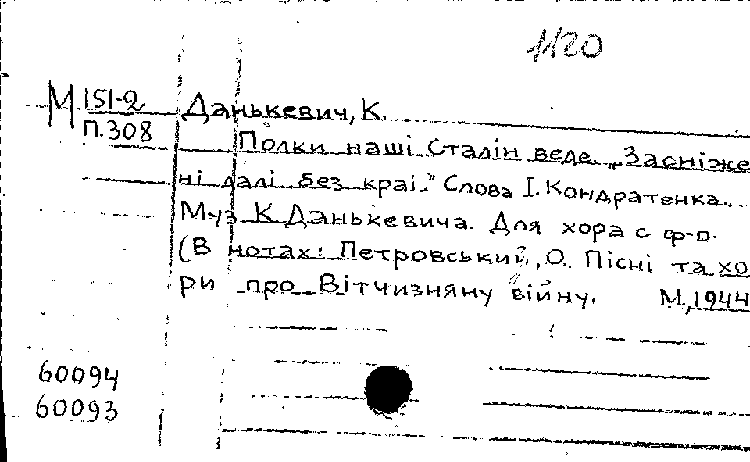 1120
М 151-2
П.308
Данькевич, К.
Полки наші Сталін веде „Засніже
ні далі без краї." Слова І. Кондратенка.
Муз К Данькевича. Для хора с ф-п.
(В нотах: Петровський, О. Пісні та хо
ри про Вітчизняну війну. М, 1944
60094
60093